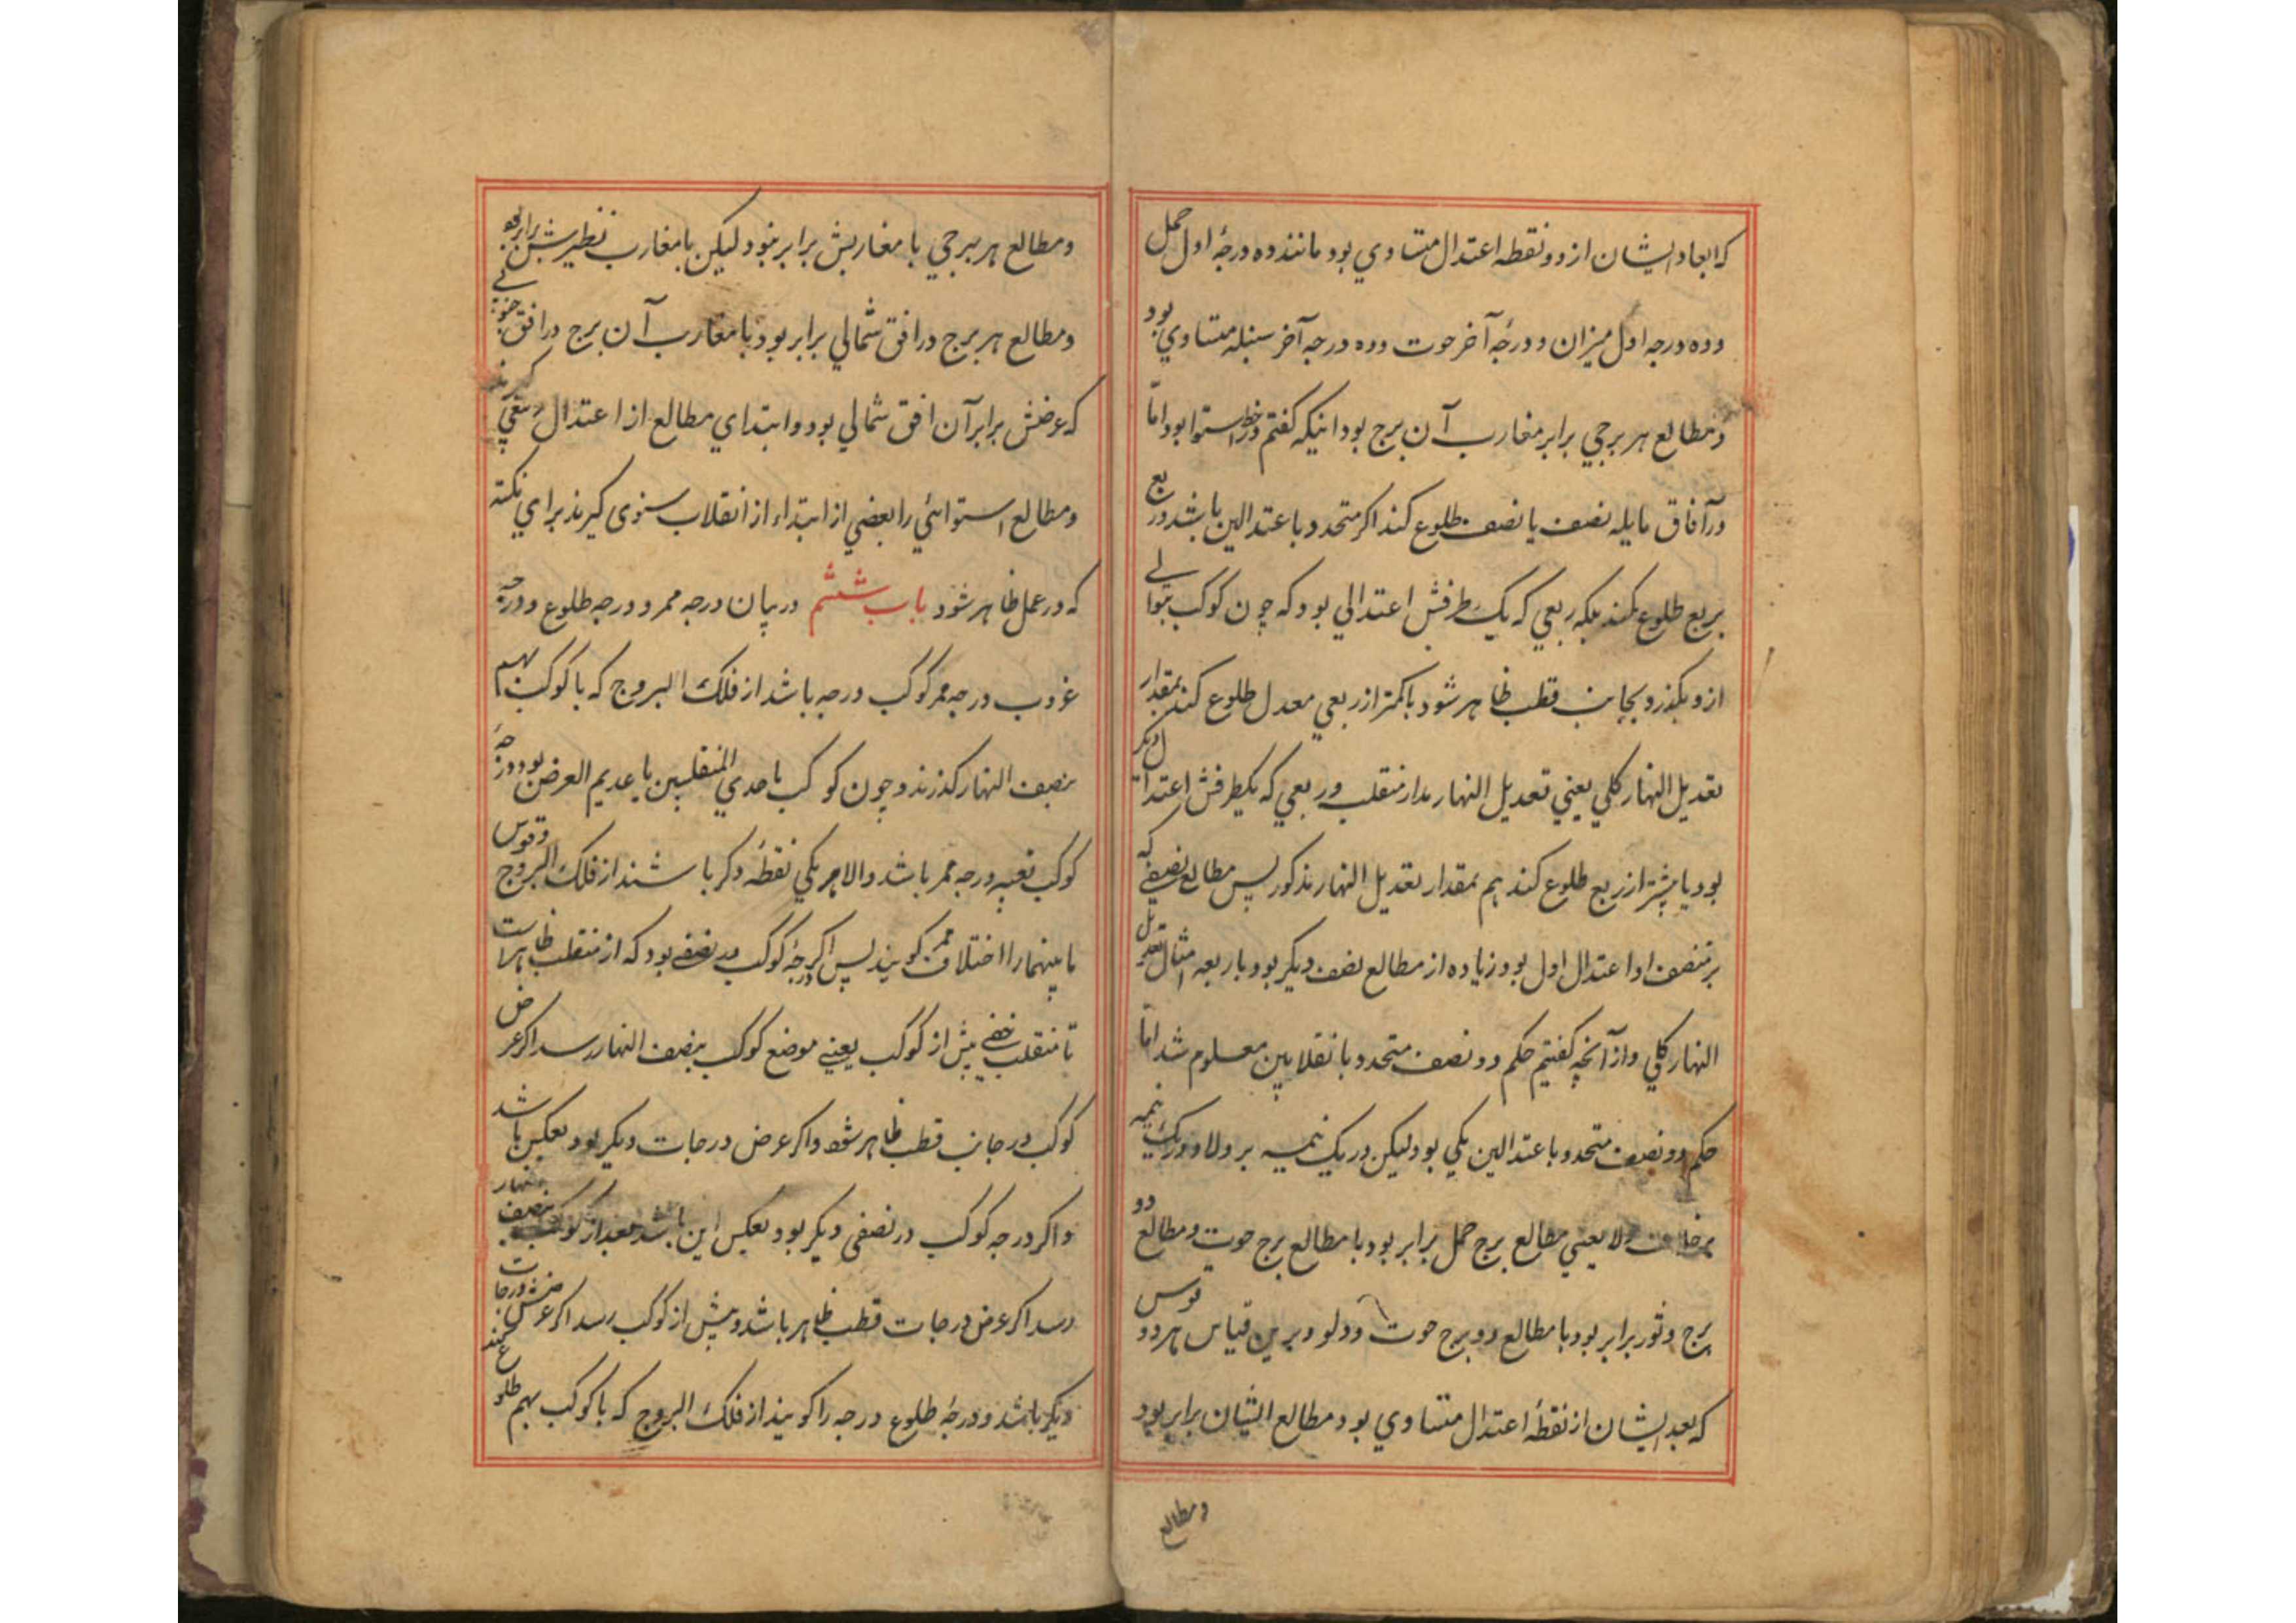 که ابعاد ایشان از دو نقطه اعتدال متساوي بود مانند ده درجهٔ اول حمل
و ده درجه اول میزان و درجهٔ آخر حوت و ده درجه آخر سنبله متساوي بود
و مطالع هر برجي برابر مغارب آن برج بود اینکه کفتم در خط استوا بود امّا
در آفاق مایله نصف با نصف طلوع کند اکر متحدد باعتدالین باشد و ربع
بربع طلوع نکند بلکه ربعي که یک طرفش اعتدالي بود که چون کوکب بتوالي
ازو بکذرد بجانب قطب ظاهر شود با کمتر از ربعي معدل طلوع کند بمقدار
تعدیل النهار کلي یعني تعدیل النهار مدار منقلب و ربعي که یکطرفش اعتدال دیکر
بود با پیشتر از ربع طلوع کند هم بمقدار تعدیل النهار مذکور پس مطالع نصفے که
بر منصف او اعتدال اول بود زیاده از مطالع نصف دیکر بود باربعه امثال تعدیل
النهار کلي و از آنچه کفتیم حکم دو نصف متحدد بانقلابین معلوم شد امّا
حکم دو نصف متحدد باعتدالین یکي بود لیکن در یک نیمه بر ولا و در یک نیمه
برخلاف ولا یعني مطالع برج حمل برابر بود با مطالع برج حوت و مطالع دو
برج و ثور برابر بود با مطالع دو برج حوت و دلو و برین قیاس هر دو قوس
که بعد ایشان از نقطهٔ اعتدال متساوي بود مطالع ایشان برابر بود
و مطالع
و مطالع هر برجي با مغاربش برابر نبود لیکن با مغارب نظیرش برابر بود
و مطالع هر برج در افق شمالي برابر بود با مغارب آن برج در افق جنوبے
که عرضش برابر آن افق شمالي بود و ابتداي مطالع از اعتدال ربیعي کیرند
و مطالع استوائي را بعضي از ابتداء از انقلاب ستوی کیرند براي نکته
که در عمل ظاهر شود باب ششم در بیان درجه ممر و درجه طلوع و درجهٔ
غروب درجه ممر کوکب درجه باشد از فلک البروج که با کوکب بهم
بنصف النهار کذرند و چون کوکب با حدي المنقلبین یا عدیم العرض بود درجهٔ
کوکب بعینه درجه ممر باشد والا هر یکي نقطهٔ دکر باشند از فلک البروج و قوس
ما بینهما را اختلاف ممر کویند پس اکر درجهٔ کوکب در نصفے بود که از منقلب ظاهر است
تا منقلب خفے پیش از کوکب یعنے موضع کوکب بنصف النهار رسد اکر عرض
کوکب در جانب قطب ظاهر شود و اکر عرض در جات دیکر بود بعکس باشد
و اکر درجه کوکب در نصفی دیکر بود بعکس این باشد بعد از کوکب بنصف نهار
رسد اکر عرض در جات قطب ظاهر باشد و پیش از کوکب رسد اکر عرضش در جات
دیکر باشد و درجهٔ طلوع درجه را کویند از فلک البروج که با کوکب بهم طلوع کند